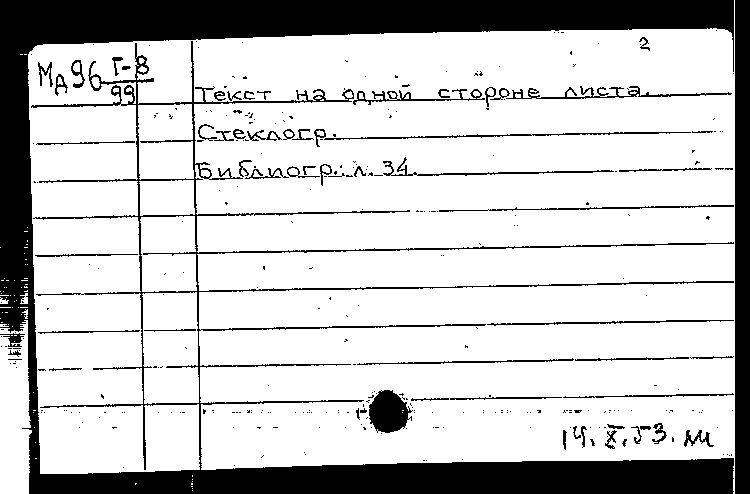 2
Мд96 Г-8
99
Текст на одной стороне листа.
Стеклогр.
Библиогр.: л. 34.
14.X.53.